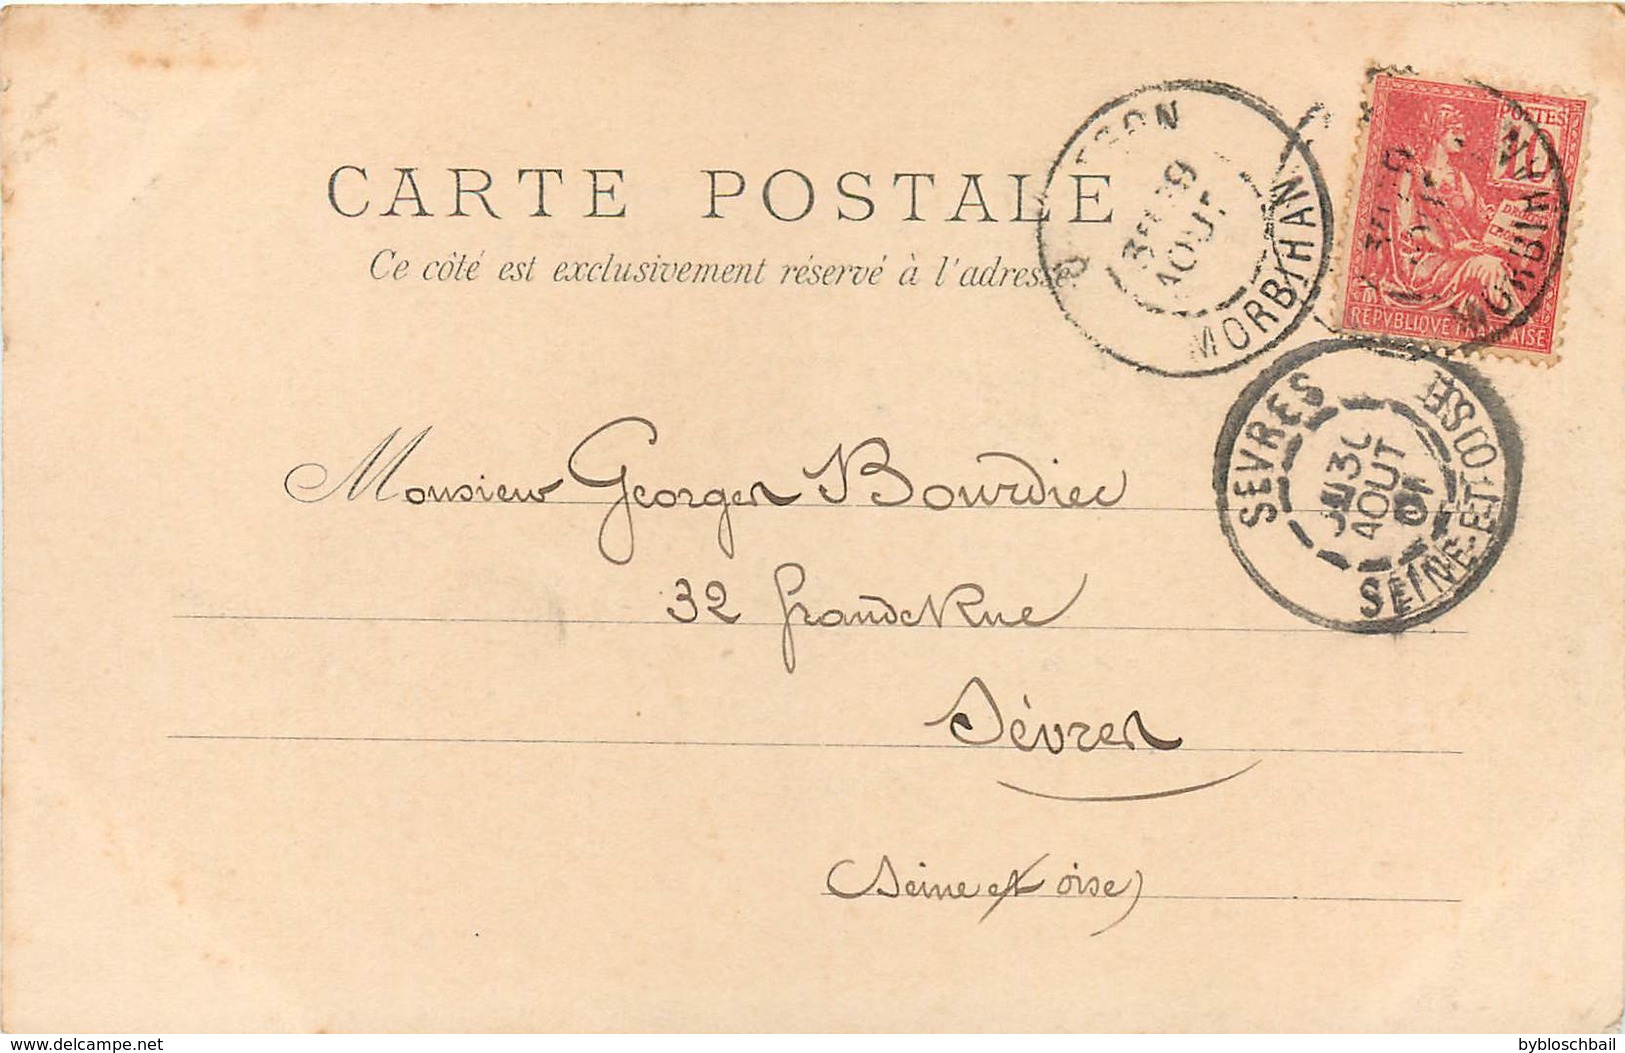 CARTE POSTALE
Ce côté est exclusivement réservé à l'adresse.
MORBIHAN
3E 29
AOUT
POSTES
10
REPVBLIQVE FRANCAISE
MORBIHAN
SEVRES
AOUT
01
SEINE-ET-OISE
Monsieur Georges Bourdier
32 Grande Rue
Sèvres
(Seine et oise)
www.delcampe.net
bybloschbail